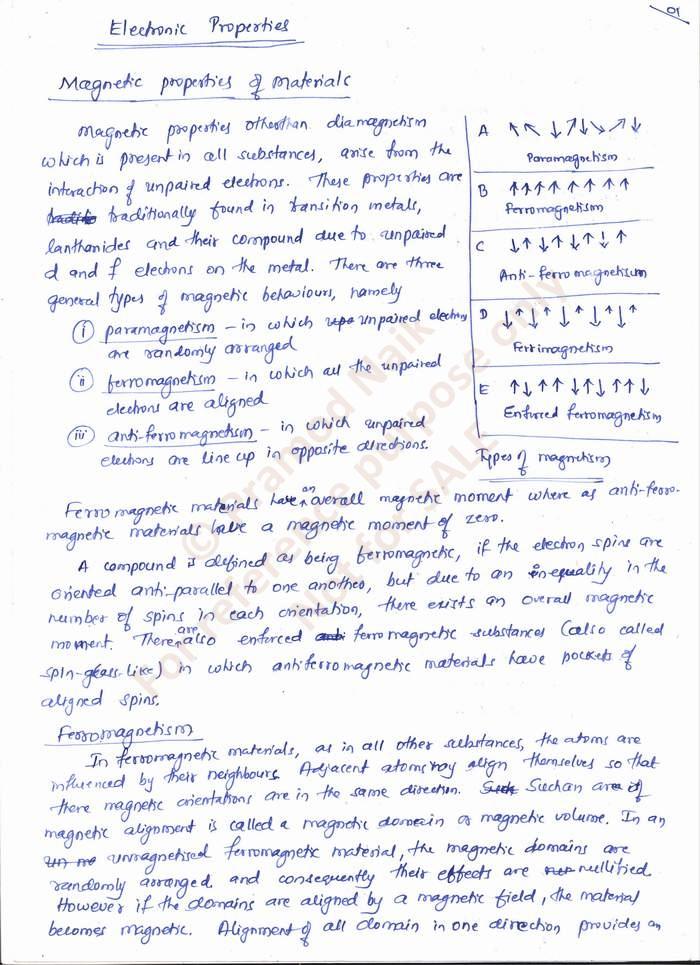 01
Electronic Properties
Magnetic properties of materials
Magnetic properties otherthan diamagnetism
which is present in all substances, arise from the
interaction of unpaired electrons. These properties are
traditionally found in transition metals,
lanthanides and their compound due to unpaired
d and f elections on the metal. There are three
general types of magnetic behaviours, namely
(i) paramagnetism – in which unpaired electrons
are randomly arranged
(ii) ferromagnetism – in which all the unpaired
elections are aligned
(iii) anti-ferromagnetism – in which unpaired
elections are line up in opposite directions.
A ↖ ↖ ↓ ↗ ↓ ↘ ↗ ↓
Paramagnetism
B ↑ ↑ ↑ ↑ ↑ ↑ ↑ ↑
Ferromagnetism
C ↓ ↑ ↓ ↑ ↓ ↑ ↓ ↑
Anti-ferro magnetisum
D ↓ ↑ ↓ ↑ ↓ ↑ ↓ ↑
Ferrimagnetism
E ↑ ↓ ↑ ↑ ↓ ↑ ↓ ↑ ↑ ↓
Enforced ferromagnetism
Types of magnetism
Ferro magnetic materials have an overall magnetic moment where as anti-ferro-
magnetic materials have a magnetic moment of zero.
A compound is defined as being ferromagnetic, if the electron spins are
oriented anti-parallel to one another, but due to an inequality in the
number of spins in each orientation, there exists an overall magnetic
moment. There are also enforced ferromagnetic substances (also called
spin-glass-like) in which antiferromagnetic materials have pockets of
aligned spins.
Ferromagnetism
In ferromagnetic materials, as in all other substances, the atoms are
influenced by their neighbours. Adjacent atoms may align themselves so that
there magnetic orientations are in the same direction. Such an area of
magnetic alignment is called a magnetic domain or magnetic volume. In an
unmagnetised ferromagnetic material, the magnetic domains are
randomly arranged and consequently their effects are nullified.
However if the domains are aligned by a magnetic field, the material
becomes magnetic. Alignment of all domain in one direction provides an
© Pramod Naik
For reference purpose only
Not for SALE